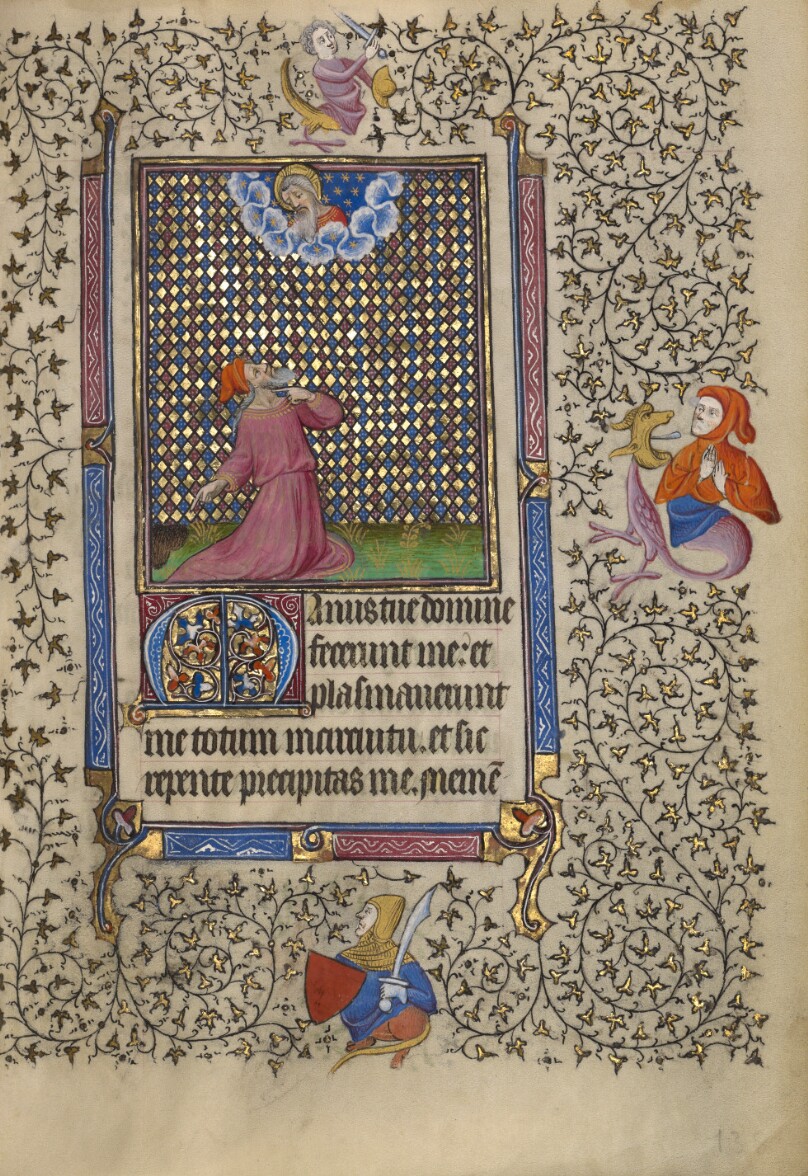 Manus tue domine
fecerunt me: et
plasmaverunt
me totum in circuitu. et sic
repente precipitas me. Memē
13